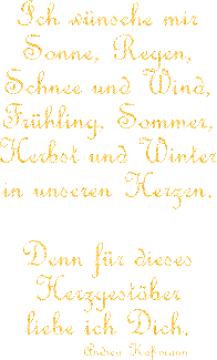 Ich wünsche mir
Sonne, Regen,
Schnee und Wind,
Frühling, Sommer,
Herbst und Winter
in unseren Herzen.
Denn für dieses
Herzgestöber
liebe ich Dich.
Andrea Koßmann